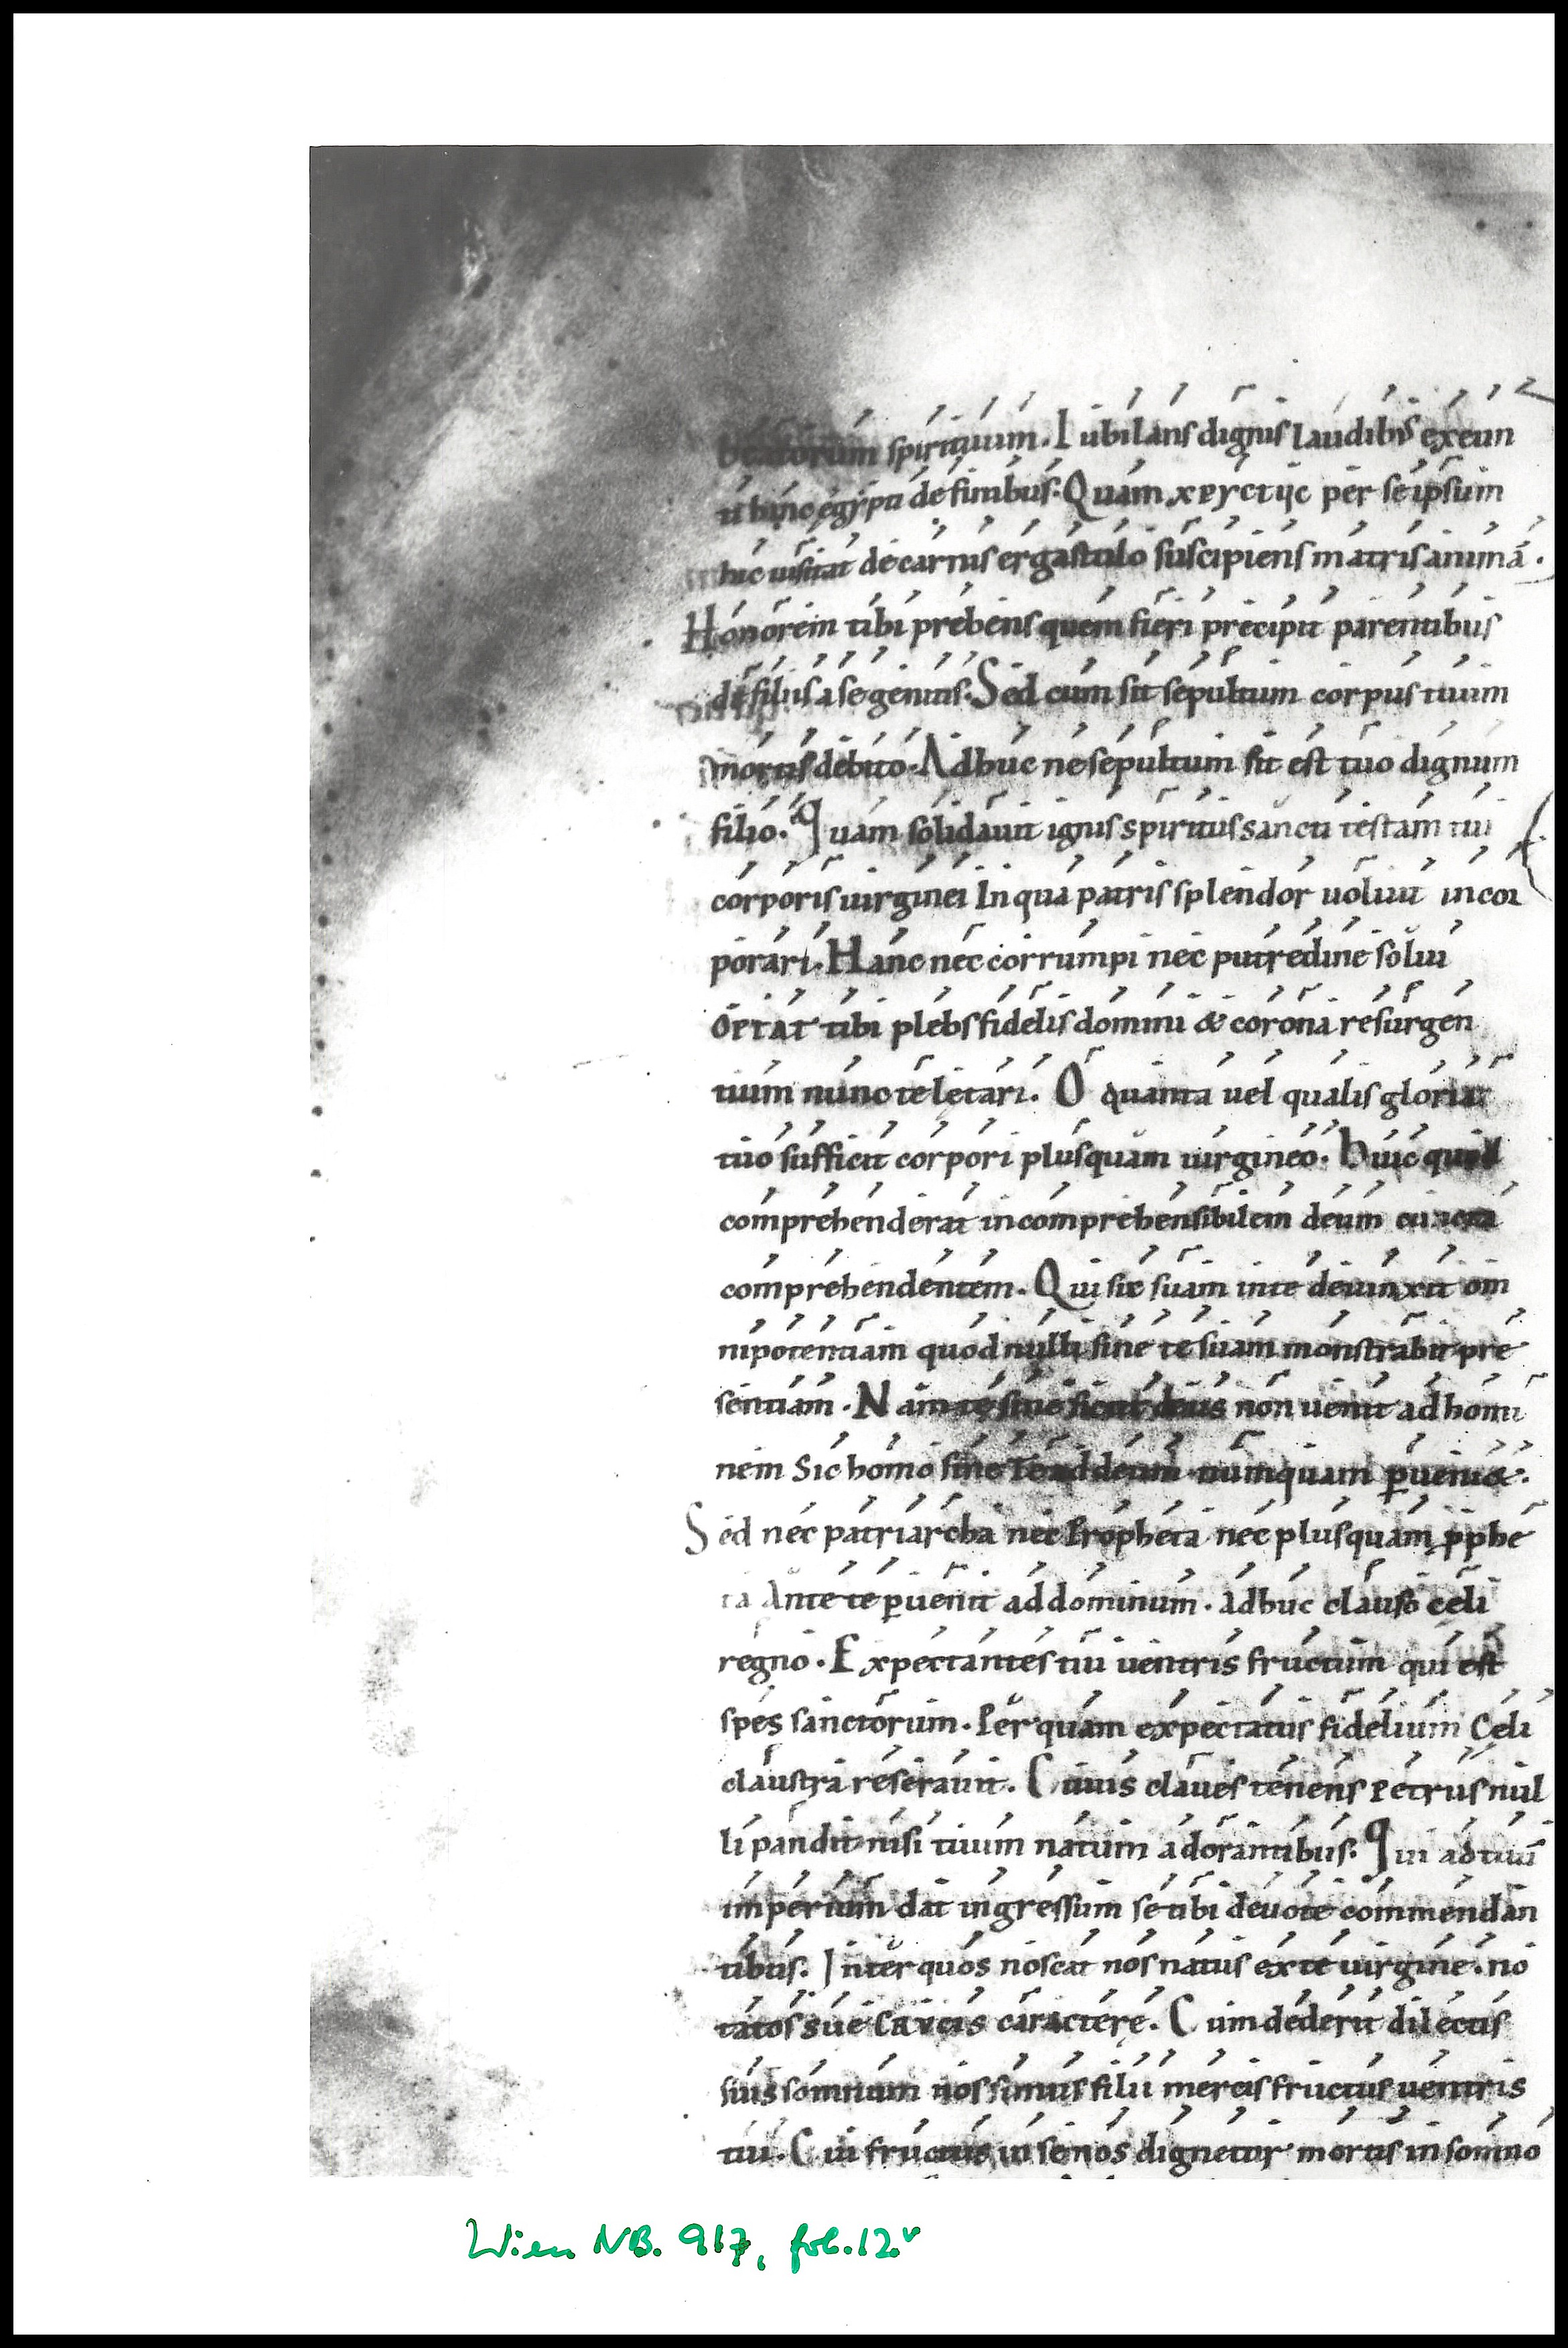 beatorum spirituum. Iubilans dignis laudibꝰ exeun
ti hinc egypti de finibus. Quam xpyctijc per se ipsum
hic uisitat de carnis ergastulo suscipiens matris animā.
Honorem tibi prebens quem fieri precipit parentibus
filius a se genitis. Sed cum sit sepultum corpus tuum
mortis debito. Adhuc ne sepultum sit est tuo dignum
filio. Quam solidauit ignis spiritus sancti testam tui
corporis uirginei In qua patris splendor uoluit incor
porari. Hanc nec corrumpi nec putredine solui
Optat tibi plebs fidelis domini & corona resurgen
tium nunc te letari. O quanta uel qualis gloria
tuo sufficit corpori plusquam uirgineo. Huic quod
comprehenderat incomprehensibilem deum cuncta
comprehendentem. Qui sic suam in te deuinxit om
nipotentiam quod nulli sine te suam monstrabit pre
sentiam. Nam te sine sicut deus non uenit ad homi
nem Sic homo sine Te ad deum numquam ꝑueni&.
Sed nec patriarcha nec Propheta nec plusquam ꝓphe
ta Ante te ꝑuenit ad dominum. adhuc clauso celi
regno. Expectantes tui uentris fructum qui est
spes sanctorum. Per quam expectatus fidelium Celi
claustra reserauit. Cuius claues tenens Petrus nul
li pandit nisi tuum natum adorantibus. Qui ad tuū
imperium dat ingressum se tibi deuote commendan
tibus. Inter quos noscat nos natus ex te uirgine. no
tatos sue Crucis caractere. Cum dederit dilectis
suis somnum nos simus filii merces fructus uentris
tui. Cui fructus ui se nos dignetur mortis in somno
Wien NB. 917, fol. 12.v